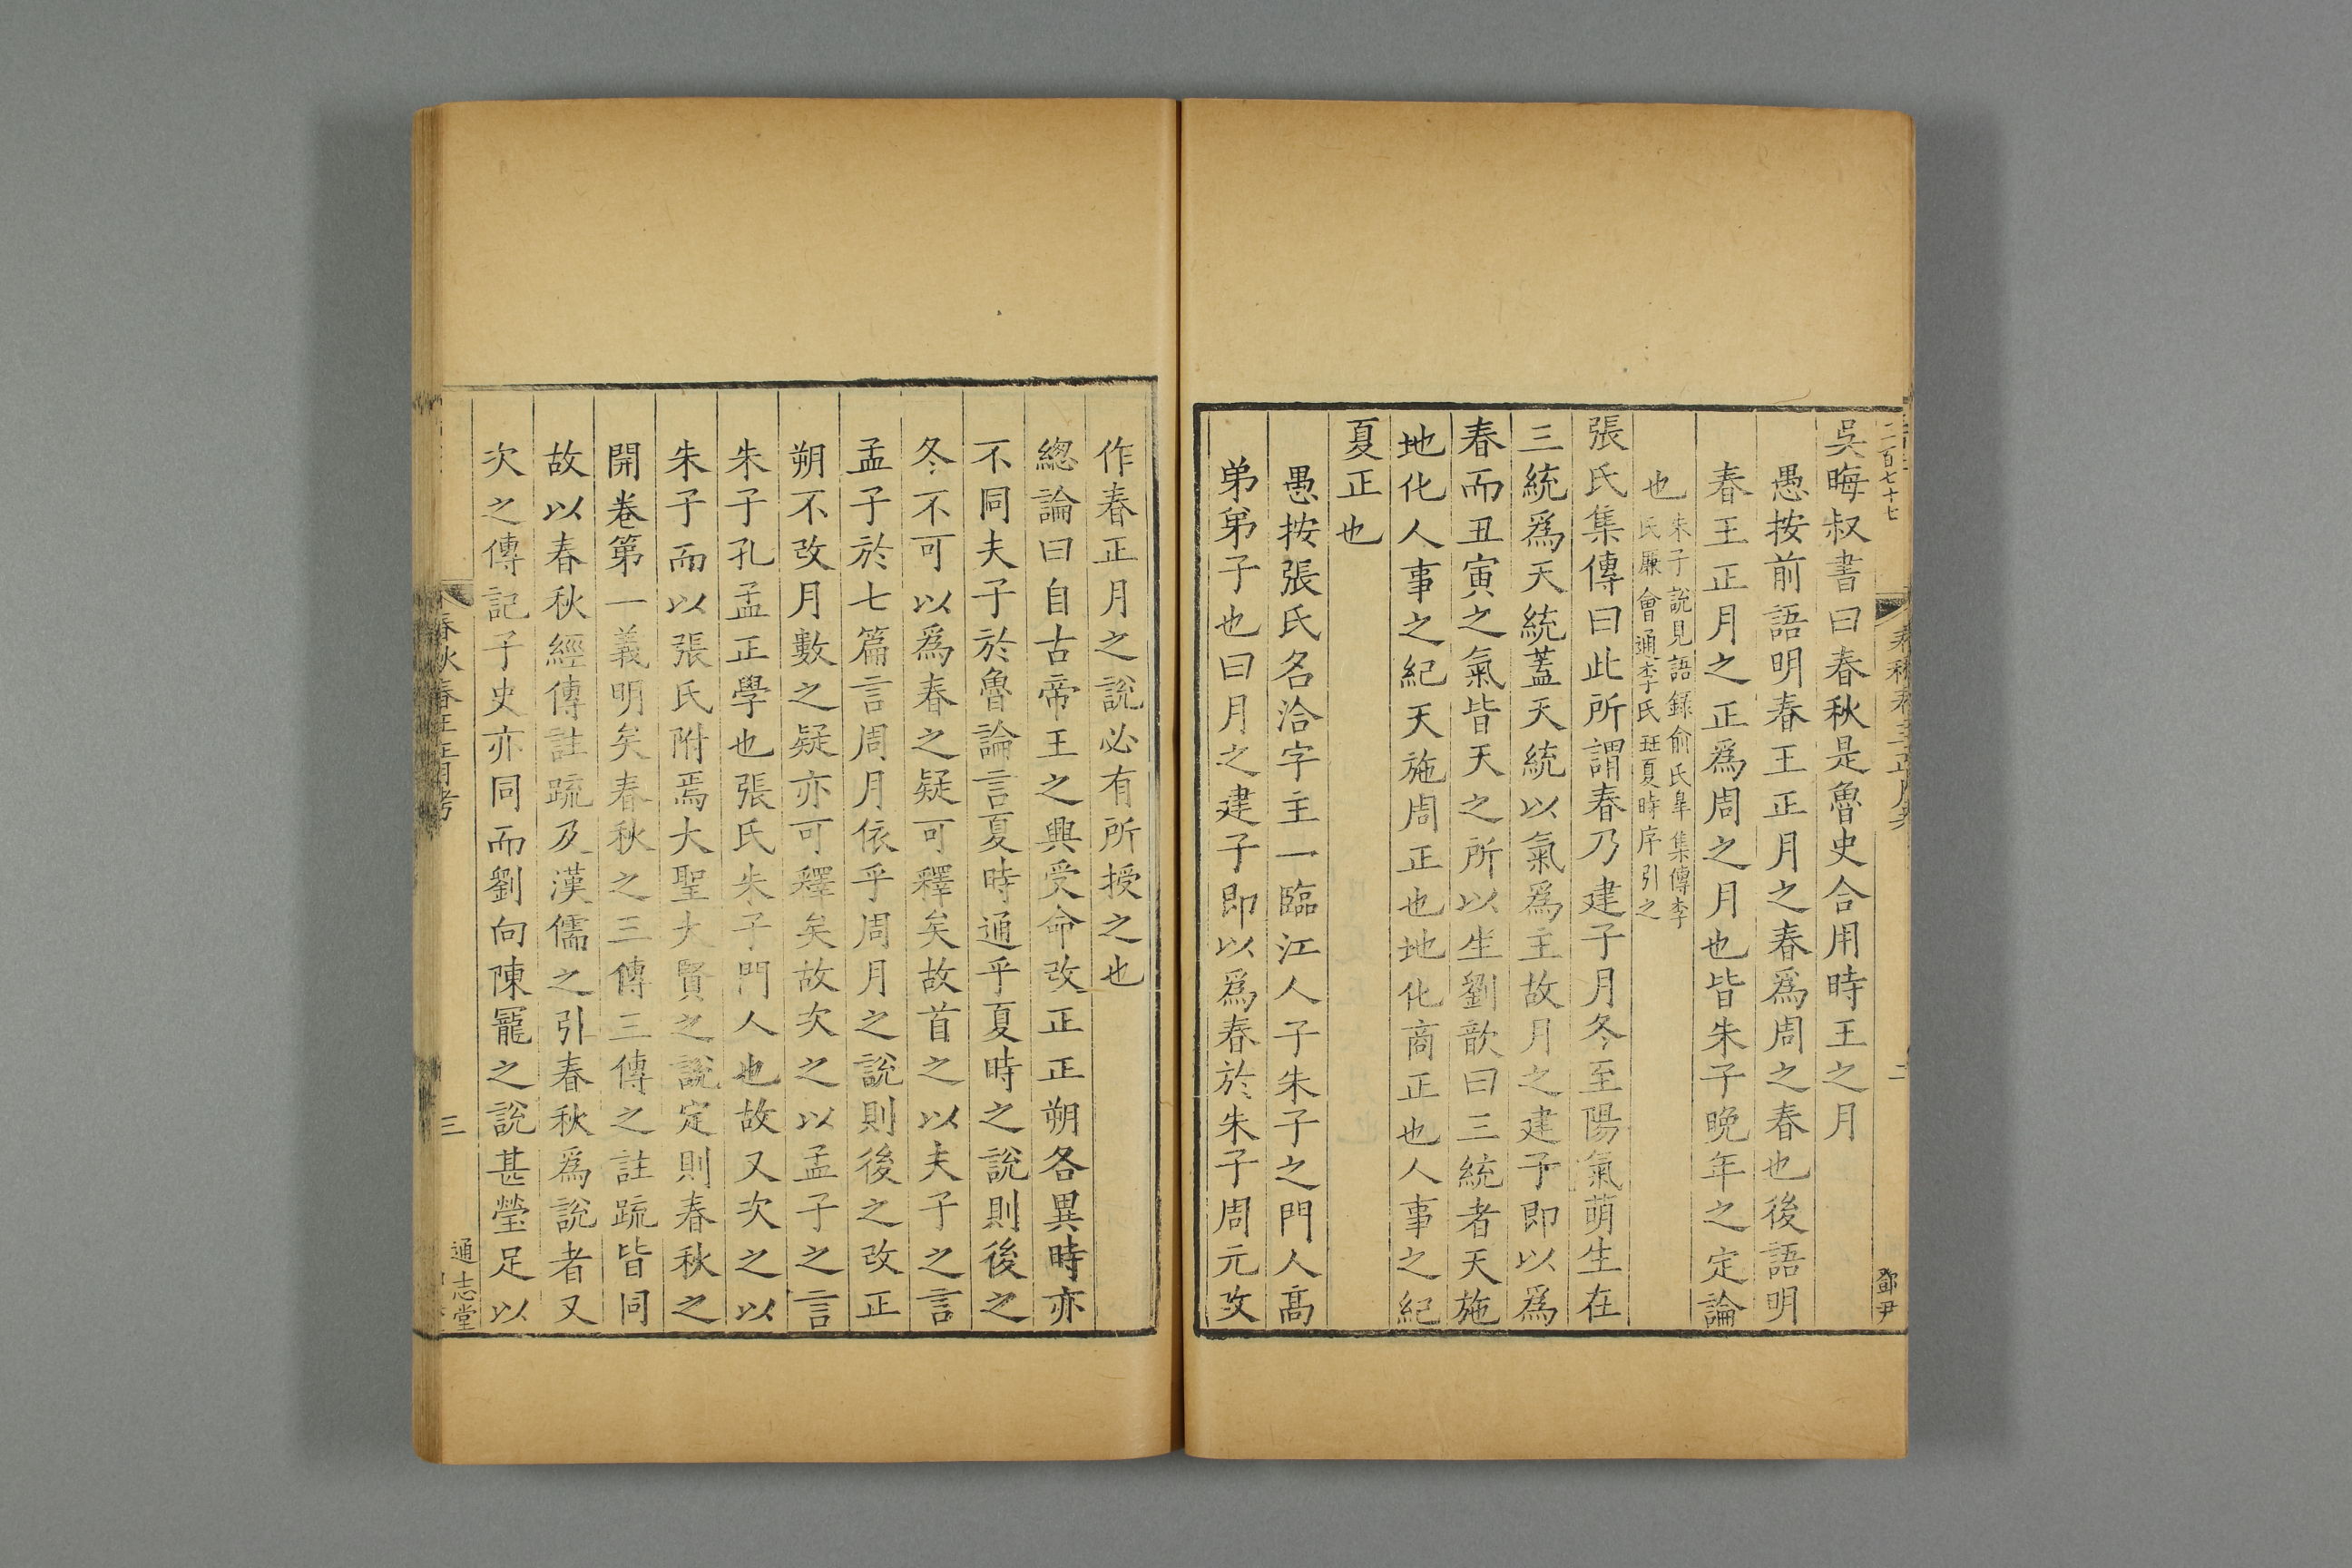 二百七十七
春秋春王正月考
二
鄧尹
吳晦叔書曰春秋是魯史合用時王之月
愚按前語明春王正月之春爲周之春也後語明
春王正月之正爲周之月也皆朱子晚年之定論
也朱子說見語錄俞氏皐集傳李
氏廉會通李氏㺬夏時序引之
張氏集傳曰此所謂春乃建子月冬至陽氣萌生在
三統爲天統蓋天統以氣爲主故月之建子即以爲
春而丑寅之氣皆天之所以生劉歆曰三統者天施
地化人事之紀天施周正也地化商正也人事之紀
夏正也
愚按張氏名洽字主一臨江人子朱子之門人高
弟弟子也曰月之建子即以爲春於朱子周元改
作春正月之說必有所授之也
總論曰自古帝王之興受命改正正朔各異時亦
不同夫子於魯論言夏時通乎夏時之說則後之
冬不可以爲春之疑可釋矣故首之以夫子之言
孟子於七篇言周月依乎周月之說則後之改正
朔不改月數之疑亦可釋矣故次之以孟子之言
朱子孔孟正學也張氏朱子門人也故又次之以
朱子而以張氏附焉大聖大賢之說定則春秋之
開卷第一義明矣春秋之三傳三傳之註疏皆同
故以春秋經傳註疏及漢儒之引春秋爲說者又
次之傳記子史亦同而劉向陳寵之說甚瑩足以
春秋春王正月考
三
通志堂